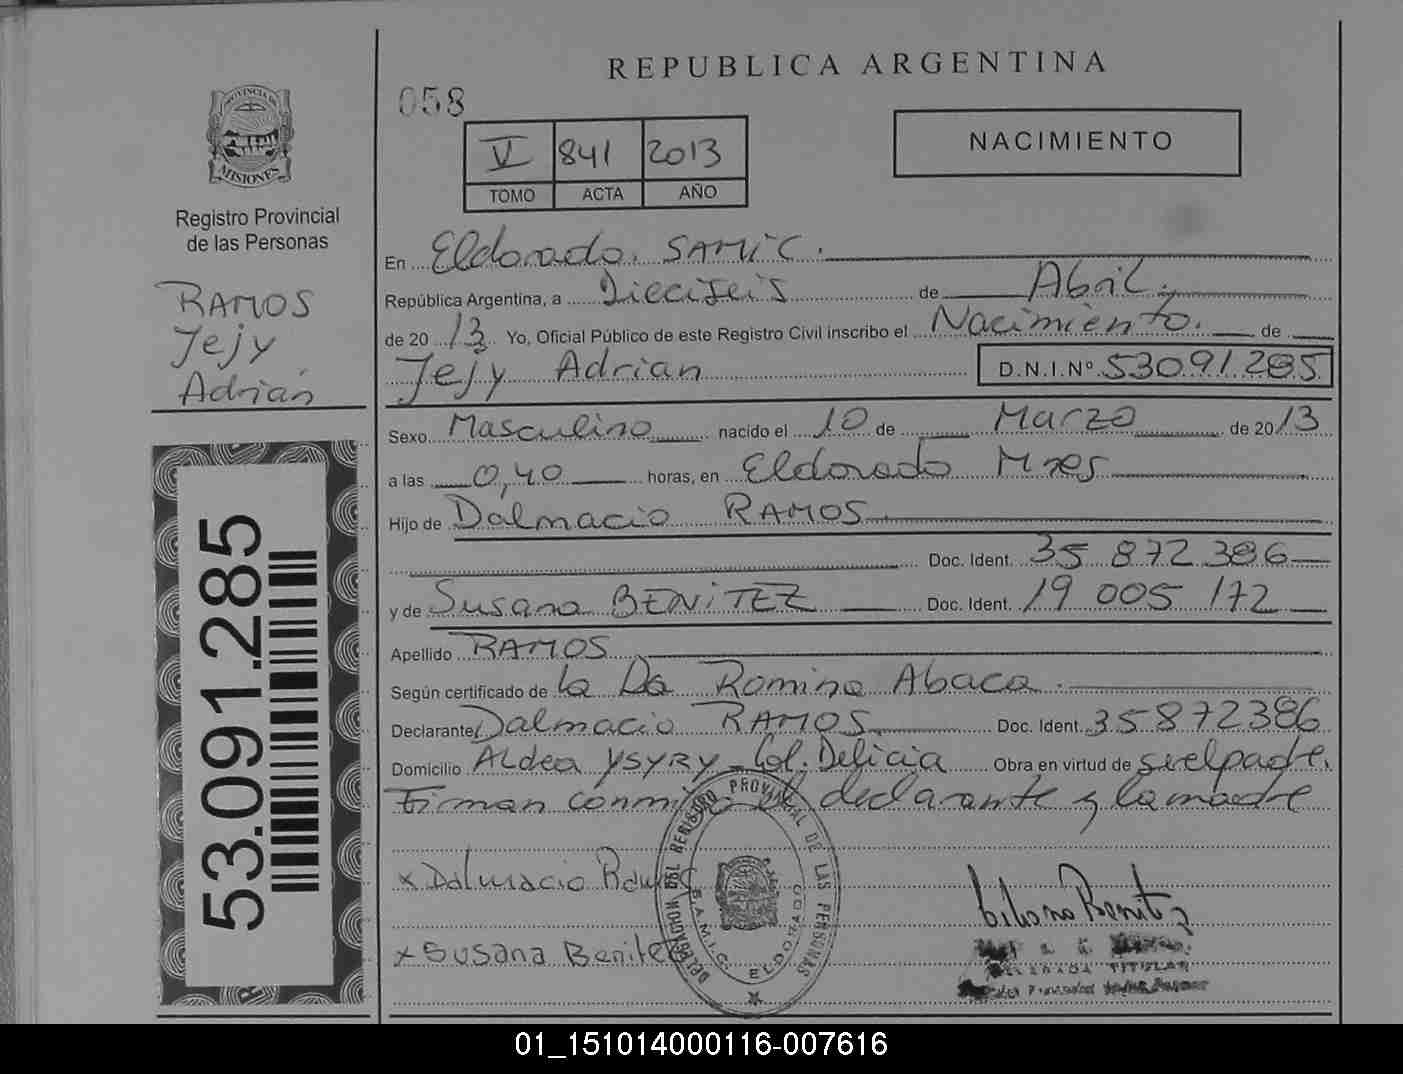 REPUBLICA ARGENTINA
058
PROVINCIA DE
MISIONES
Registro Provincial
de las Personas
RAMOS
Jejy
Adrián
53.091.285
V 841 2013
TOMO ACTA AÑO
NACIMIENTO
En Eldorado. SAMIC.
República Argentina, a Dieciseis de Abril
de 2013 Yo, Oficial Público de este Registro Civil inscribo el Nacimiento. de
Jejy Adrian D.N.I.Nº 53091285
Sexo Masculino nacido el 10 de Marzo de 2013
a las 0,40 horas, en Eldorado Mnes
Hijo de Dalmacio RAMOS
Doc. Ident. 35 872 386
y de Susana BENITEZ Doc. Ident. 19 005 172
Apellido RAMOS
Según certificado de la Da Romina Abaca
Declarante Dalmacio RAMOS Doc. Ident. 35872386
Domicilio ALdea YSYRY - Col. Delicia Obra en virtud de ser el padre.
Firman conmigo el declarante y la madre
x Dalmacio Ramos
x Susana Benitez
DELEGACION DEL REGISTRO PROVINCIAL DE LAS PERSONAS
S.A.M.I.C. ELDORADO
Benitez
TITULAR
01_151014000116-007616